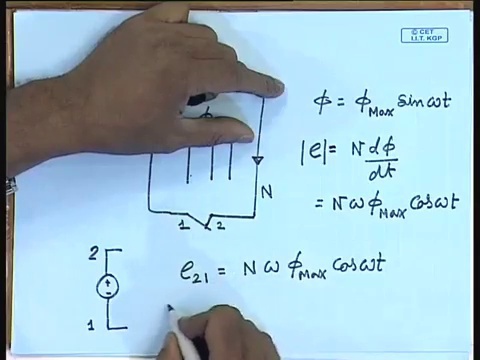 © CET
I.I.T. KGP
ϕ = ϕMax sin ωt
|e| = N dϕ/dt
= N ω ϕMax cos ωt
N
1 2
2
+
-
1
e21 = N ω ϕMax cos ωt